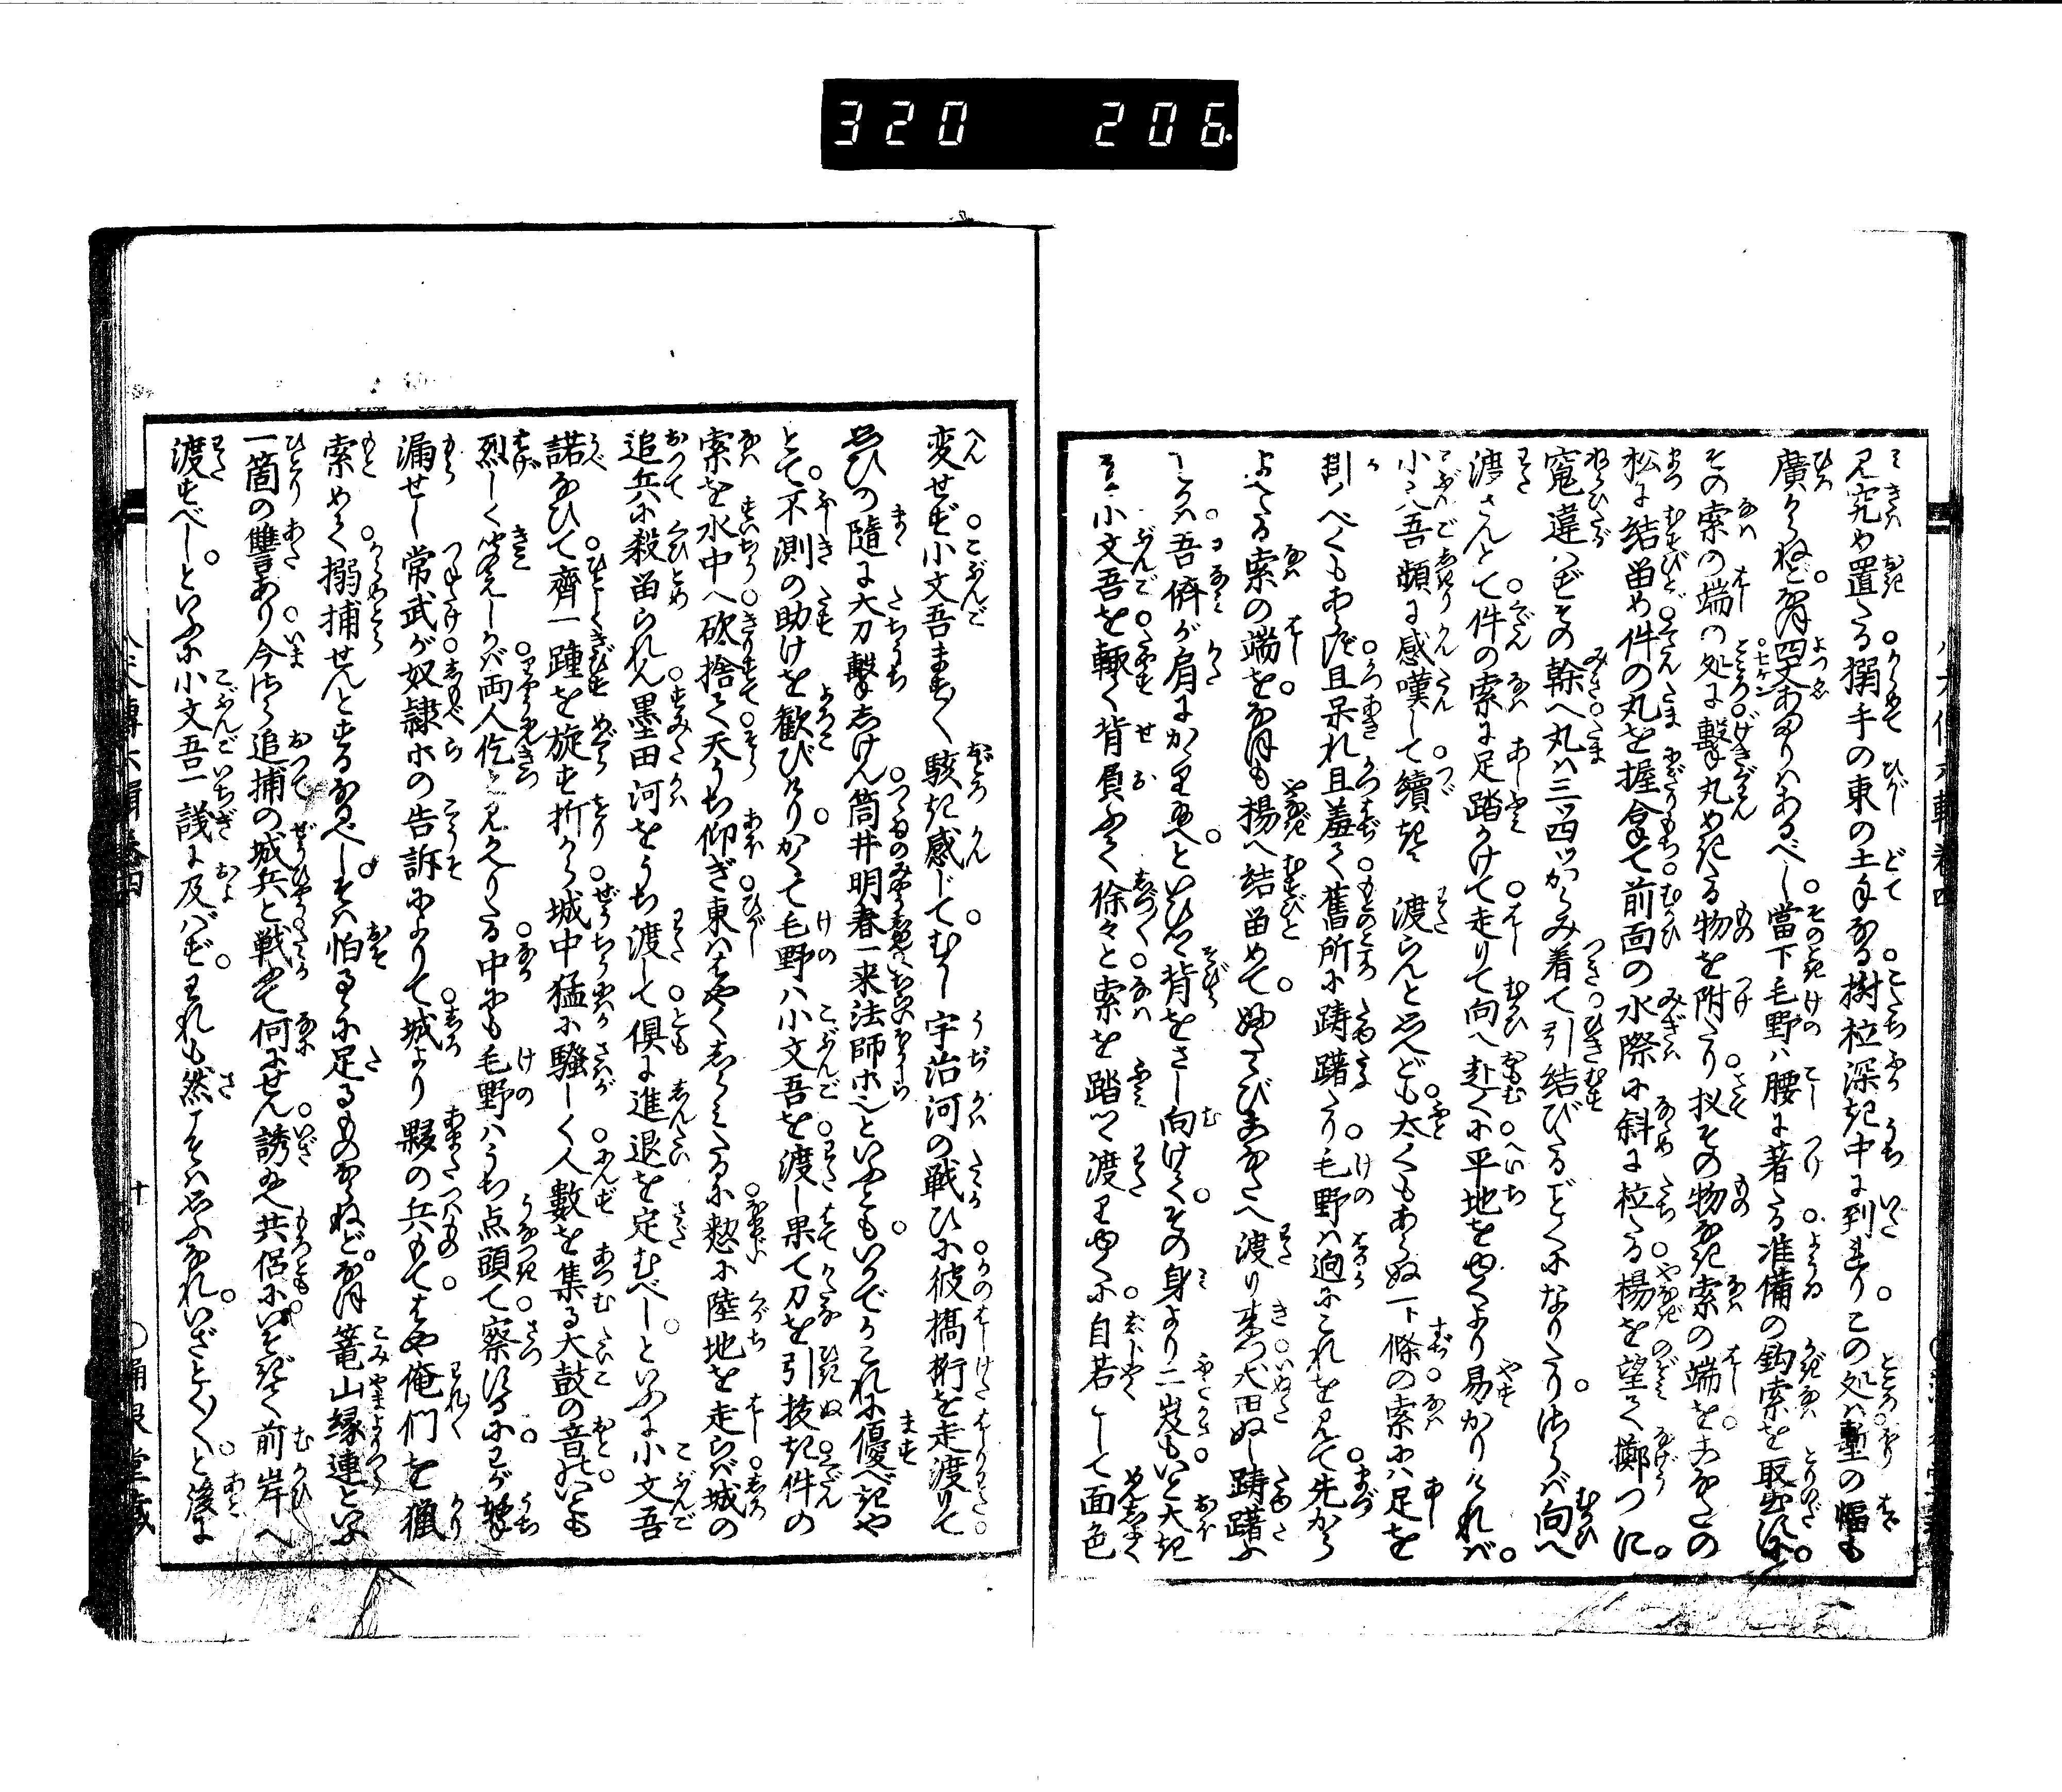 320 206
見究め置たる搦手の東の土手なる樹柆深き中に到りけり。この処は塹の幅も
廣からねど。なほ四丈あまりはあるべし當下毛野ハ腰に著たる准備の鈎索を取出しつ。
その索の端の処に撃丸めきたる物を附たり扠その物なき索の端をこなたの
松に結畄め件の丸を握合て前面の水際に斜に柆たる楊を望て擲つに。
寃違ハずその幹へ丸ハ三四ツからみ着て引結びたるごとくになりたり。さらバ向へ
渡さんとて件の索に足踏かけて走りて向へ赴くに平地をゆくより易かりければ。
小文吾頻に感嘆して續きて渡らんと思へども太くもあらぬ一條の索にハ足を
掛べくもあらず且呆れ且羞て舊所に躊躇たり毛野ハ迥にこれを見て先から
よへたる索の端を。なほも楊へ結畄めて。ふたゝびこなたへ渡り来つ犬田ぬし躊躇ふ
ことかハ。吾儕が肩にかゝり給へ。といひつゝ背をさし向けて。その身より二岌もいと大き
なる小文吾を輙く背負ふて徐々と索を踏つゝ渡りゆくに。自若として面色
変せず小文吾ます〳〵駭き感じて。むかし宇治河の戦ひに彼橋桁を走渡りて
思ひの隨に大刀撃しけん筒井明春一来法師ホといふとも。いかでかこれに優べきや
とて。不測の助けを歓びけり。かくて毛野ハ小文吾を渡し果て刀を引抜き件の
索を水中へ砍捨て天うち仰ぎ東ハはやくしらみたるに愁に陸地を走らバ城の
追兵に殺畄られん墨田河をうち渡して倶に進退を定むべし。といふに小文吾
諾なひて齊一踵を旋す折から城中猛に騒しく人數を集る大鼓の音。いとも
烈しく聞えしかバ両人佗と見かへりたる中にも毛野ハうち点頭て察するに。わが撃
漏せし常武が奴隷ホの告訴によりて城より夥の兵もて。はや俺們を獵
索めて搦捕せんとするなるべし。そハ怕るゝに足るものならねど。なほ篭山縁連といふ
一箇の讐あり今さら追捕の城兵と戦ふて何にせん誘給へ共侶に。いそぎて前岸へ
渡すべし。といふに小文吾一議に及バず。われも然こそハ思ふなれ。いざとく〳〵と。後に
十